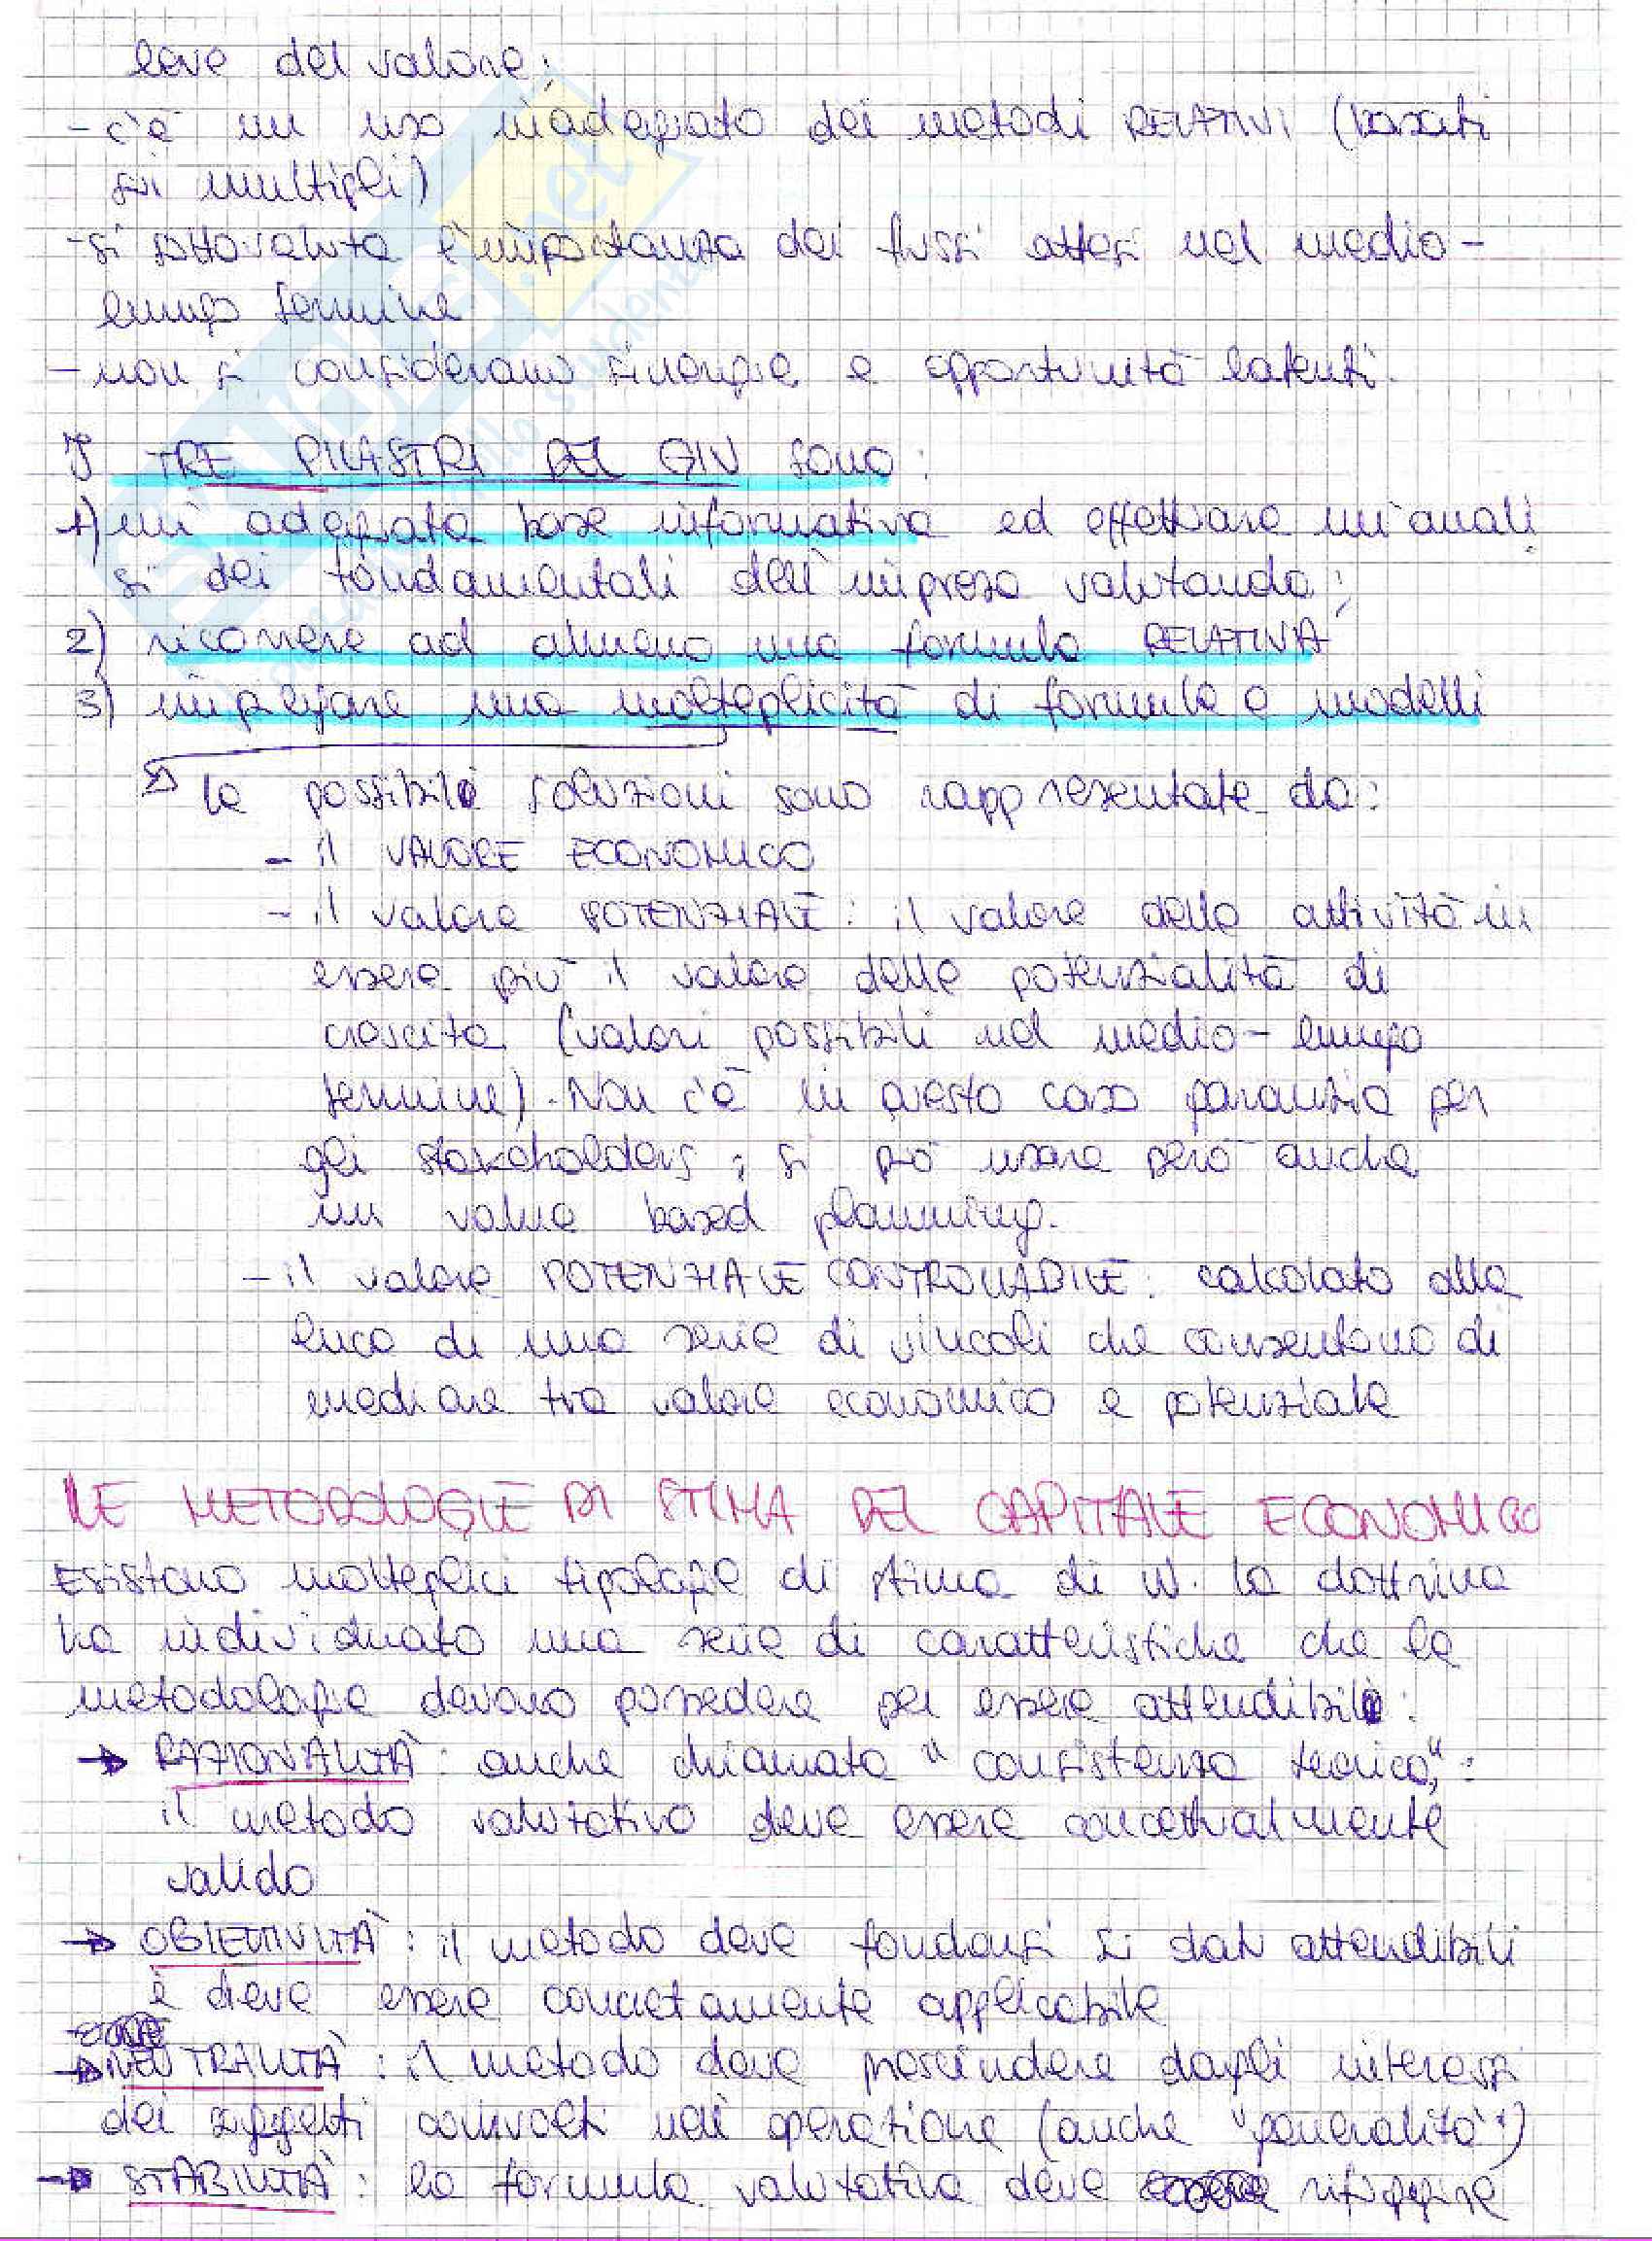 leve del valore;
- c'è un uso inadeguato dei metodi RELATIVI (basati
sui multipli)
- si sottovaluta l'importanza dei flussi attesi nel medio-
lungo termine
- non si considerano sinergie e opportunità latenti.
I TRE PILASTRI DEL GIV sono:
1) un' adeguata base informativa ed effettuare un'anali
si dei fondamentali dell'impresa valutanda;
2) ricorrere ad almeno una formula RELATIVA
3) impiegare una molteplicità di formule e modelli
le possibili soluzioni sono rappresentate da:
- il VALORE ECONOMICO
- il valore POTENZIALE: il valore delle attività in
essere più il valore delle potenzialità di
crescita (valori possibili nel medio-lungo
termine). Non c'è in questo caso garanzia per
gli stakeholders; si può usare però anche
un value based planning.
- il valore POTENZIALE CONTROLLABILE: calcolato alla
luce di una serie di vincoli che consentono di
mediare tra valore economico e potenziale
LE METODOLOGIE DI STIMA DEL CAPITALE ECONOMICO
Esistono molteplici tipologie di stima di W. La dottrina
ha individuato una serie di caratteristiche che le
metodologie devono possedere per essere attendibili:
→ RAZIONALITÀ: anche chiamata "consistenza teorica":
il metodo valutativo deve essere concettualmente
valido
→ OBIETTIVITÀ: il metodo deve fondarsi su dati attendibili
e deve essere concretamente applicabile
→ NEUTRALITÀ: il metodo deve prescindere dagli interessi
dei soggetti coinvolti nell'operazione (anche "generalità")
→ STABILITÀ: la formula valutativa deve rifuggire
skuola.net